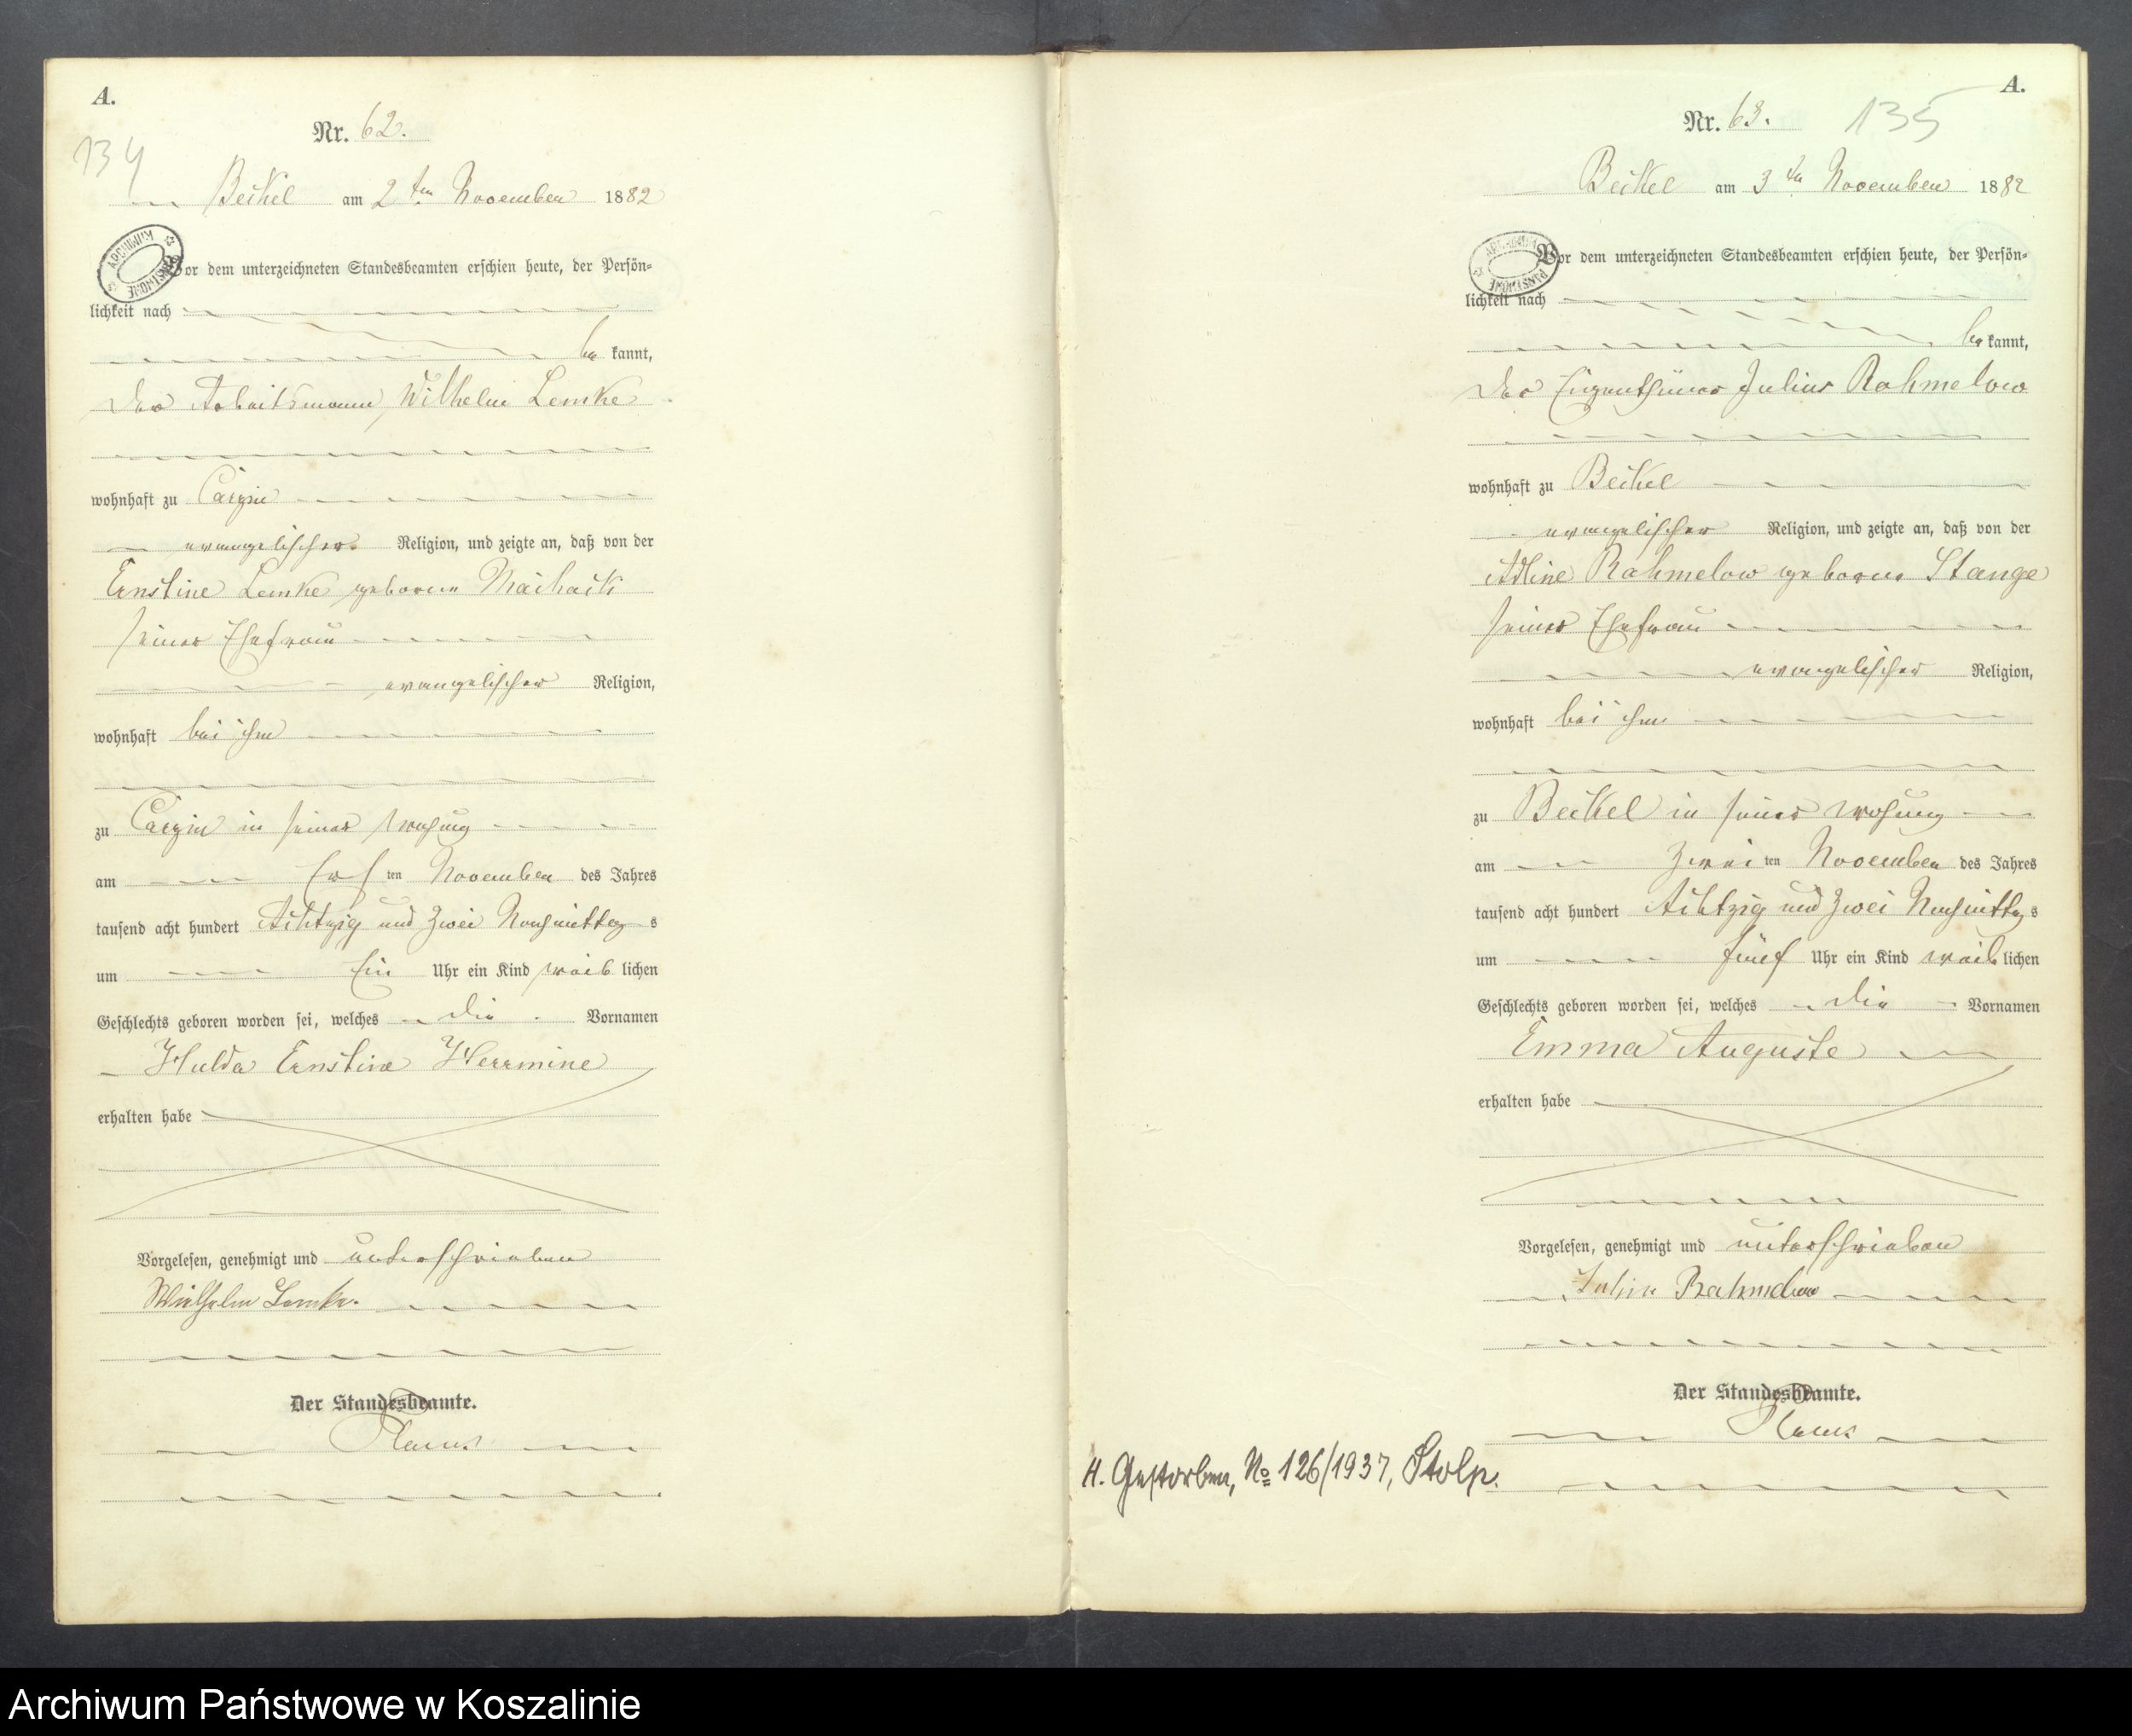 A.
Nr. 62.
134
Beckel am 2ten November 1882
ARCHIWUM PAŃSTWOWE
Vor dem unterzeichneten Standesbeamten erschien heute, der Persön=
lichkeit nach
be kannt,
der Arbeitsmann Wilhelm Lemke
wohnhaft zu
evangelischer Religion, und zeigte an, daß von der
Ernstine Lemke geborene
seiner Ehefrau
evangelischer Religion,
wohnhaft bei ihm
zu in seiner Wohung
am Ersten November des Jahres
tausend acht hundert Achtzig und Zwei Nachmittags
um Ein Uhr ein Kind weib lichen
Geschlechts geboren worden sei, welches die Vornamen
Hulda Ernstine Herrmine
erhalten habe
Vorgelesen, genehmigt und unterschrieben
Wilhelm Lemke.
Der Standesbeamte.
A.
Nr. 63.
135
Beckel am 3ten November 1882
ARCHIWUM PAŃSTWOWE
Vor dem unterzeichneten Standesbeamten erschien heute, der Persön=
lichkeit nach
be kannt,
der Eigenthümer Julius Rahmelow
wohnhaft zu Beckel
evangelischer Religion, und zeigte an, daß von der
Adline Rahmelow geborne Stange
seiner Ehefrau
evangelischer Religion,
wohnhaft bei ihm
zu Beckel in seiner Wohung
am Zwei ten November des Jahres
tausend acht hundert Achtzig und Zwei Nachmittags
um fünf Uhr ein Kind weib lichen
Geschlechts geboren worden sei, welches die Vornamen
Emma Auguste
erhalten habe
Vorgelesen, genehmigt und unterschrieben
Julius Rahmelow
Der Standesbeamte.
H. Gestorben, No 126/1937, Stolp.
Archiwum Państwowe w Koszalinie